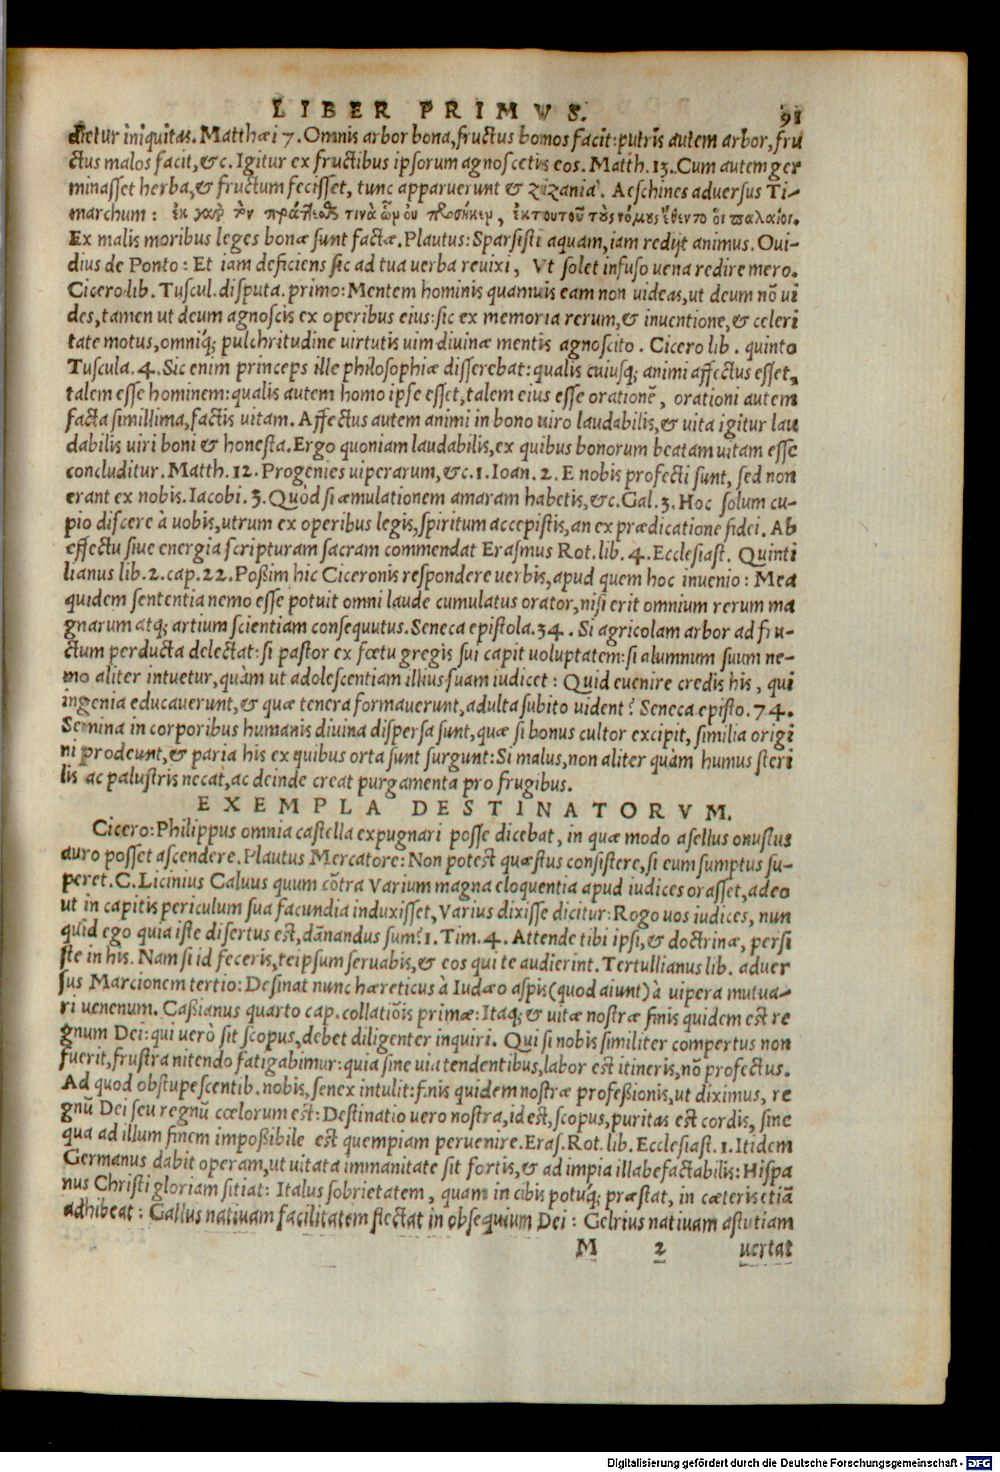 LIBER PRIMVS. 91
dicetur iniquitas. Matthæi 7. Omnis arbor bona, fructus bonos facit: putris autem arbor, fru
ctus malos facit, &c. Igitur ex fructibus ipsorum agnoscetis eos. Matth. 13. Cum autem ger
minasset herba, & fructum fecisset, tunc apparuerunt & zizania. Aeschines aduersus Ti-
marchum: ἐκ γὰρ τῶν πράττεσθαι τινὰ ὧν οὐ προσῆκεν, ἐκ τούτου τοὺς νόμους ἔθεντο οἱ παλαιοί.
Ex malis moribus leges bonæ sunt factæ. Plautus: Sparsisti aquam, iam redijt animus. Oui-
dius de Ponto: Et iam deficiens sic ad tua uerba reuixi, Vt solet infuso uena redire mero.
Cicero lib. Tuscul. disputa. primo: Mentem hominis quamuis eam non uideas, ut deum nõ ui
des, tamen ut deum agnoscis ex operibus eius: sic ex memoria rerum, & inuentione, & celeri
tate motus, omniq́; pulchritudine uirtutis uim diuinæ mentis agnoscito. Cicero lib. quinto
Tuscula. 4. Sic enim princeps ille philosophiæ disserebat: qualis cuiusq; animi affectus esset,
talem esse hominem: qualis autem homo ipse esset, talem eius esse orationẽ, orationi autem
facta simillima, factis uitam. Affectus autem animi in bono uiro laudabilis, & uita igitur lau
dabilis uiri boni & honesta. Ergo quoniam laudabilis, ex quibus bonorum beatam uitam esse
concluditur. Matth. 12. Progenies uiperarum, &c. 1. Ioan. 2. E nobis profecti sunt, sed non
erant ex nobis. Iacobi. 3. Quòd si æmulationem amaram habetis, &c. Gal. 3. Hoc solum cu-
pio discere à uobis, utrum ex operibus legis, spiritum accepistis, an ex prædicatione fidei. Ab
effectu siue energia scripturam sacram commendat Erasmus Rot. lib. 4. Ecclesiast. Quinti
lianus lib. 2. cap. 22. Poßim hic Ciceronis respondere uerbis, apud quem hoc inuenio: Mea
quidem sententia nemo esse potuit omni laude cumulatus orator, nisi erit omnium rerum ma
gnarum atq; artium scientiam consequutus. Seneca epistola. 34. Si agricolam arbor ad fru-
ctum perducta delectat: si pastor ex fœtu gregis sui capit uoluptatem: si alumnum suum ne-
mo aliter intuetur, quàm ut adolescentiam illius suam iudicet: Quid euenire credis his, qui
ingenia educauerunt, & quæ tenera formauerunt, adulta subito uident? Seneca episto. 74.
Semina in corporibus humanis diuina dispersa sunt, quæ si bonus cultor excipit, similia origi
ni prodeunt, & paria his ex quibus orta sunt surgunt: Si malus, non aliter quàm humus steri
lis ac palustris necat, ac deinde creat purgamenta pro frugibus.
EXEMPLA DESTINATORVM.
Cicero: Philippus omnia castella expugnari posse dicebat, in quæ modo asellus onustus
auro posset ascendere. Plautus Mercatore: Non potest quæstus consistere, si eum sumptus su-
peret. C. Licinius Caluus quum cõtra Varium magna eloquentia apud iudices orasset, adeo
ut in capitis periculum sua facundia induxisset, Varius dixisse dicitur: Rogo uos iudices, nun
quid ego quia iste disertus est, dãnandus sum? 1. Tim. 4. Attende tibi ipsi, & doctrinæ, persi
ste in his. Nam si id feceris, teipsum seruabis, & eos qui te audierint. Tertullianus lib. aduer
sus Marcionem tertio: Desinat nunc hæreticus à Iudæo aspis (quod aiunt) à uipera mutua-
ri uenenum. Caßianus quarto cap. collatiõis primæ: Itaq; & uitæ nostræ finis quidem est re
gnum Dei: qui uerò sit scopus, debet diligenter inquiri. Qui si nobis similiter compertus non
fuerit, frustra nitendo fatigabimur: quia sine uia tendentibus, labor est itineris, nõ profectus.
Ad quod obstupescentib. nobis, senex intulit: finis quidem nostræ profeßionis, ut diximus, re
gnũ Dei seu regnũ cœlorum est: Destinatio uero nostra, id est, scopus, puritas est cordis, sine
qua ad illum finem impoßibile est quempiam peruenire. Eras. Rot. lib. Ecclesiast. 1. Itidem
Germanus dabit operam, ut uitata immanitate sit fortis, & ad impia illabefactabilis: Hispa
nus Christi gloriam sitiat: Italus sobrietatem, quam in cibis potuq́; præstat, in cæteris etiã
adhibeat: Gallus natiuam facilitatem flectat in obsequium Dei: Gelrius natiuam astutiam
M 2 uertat
Digitalisierung gefördert durch die Deutsche Forschungsgemeinschaft - DFG